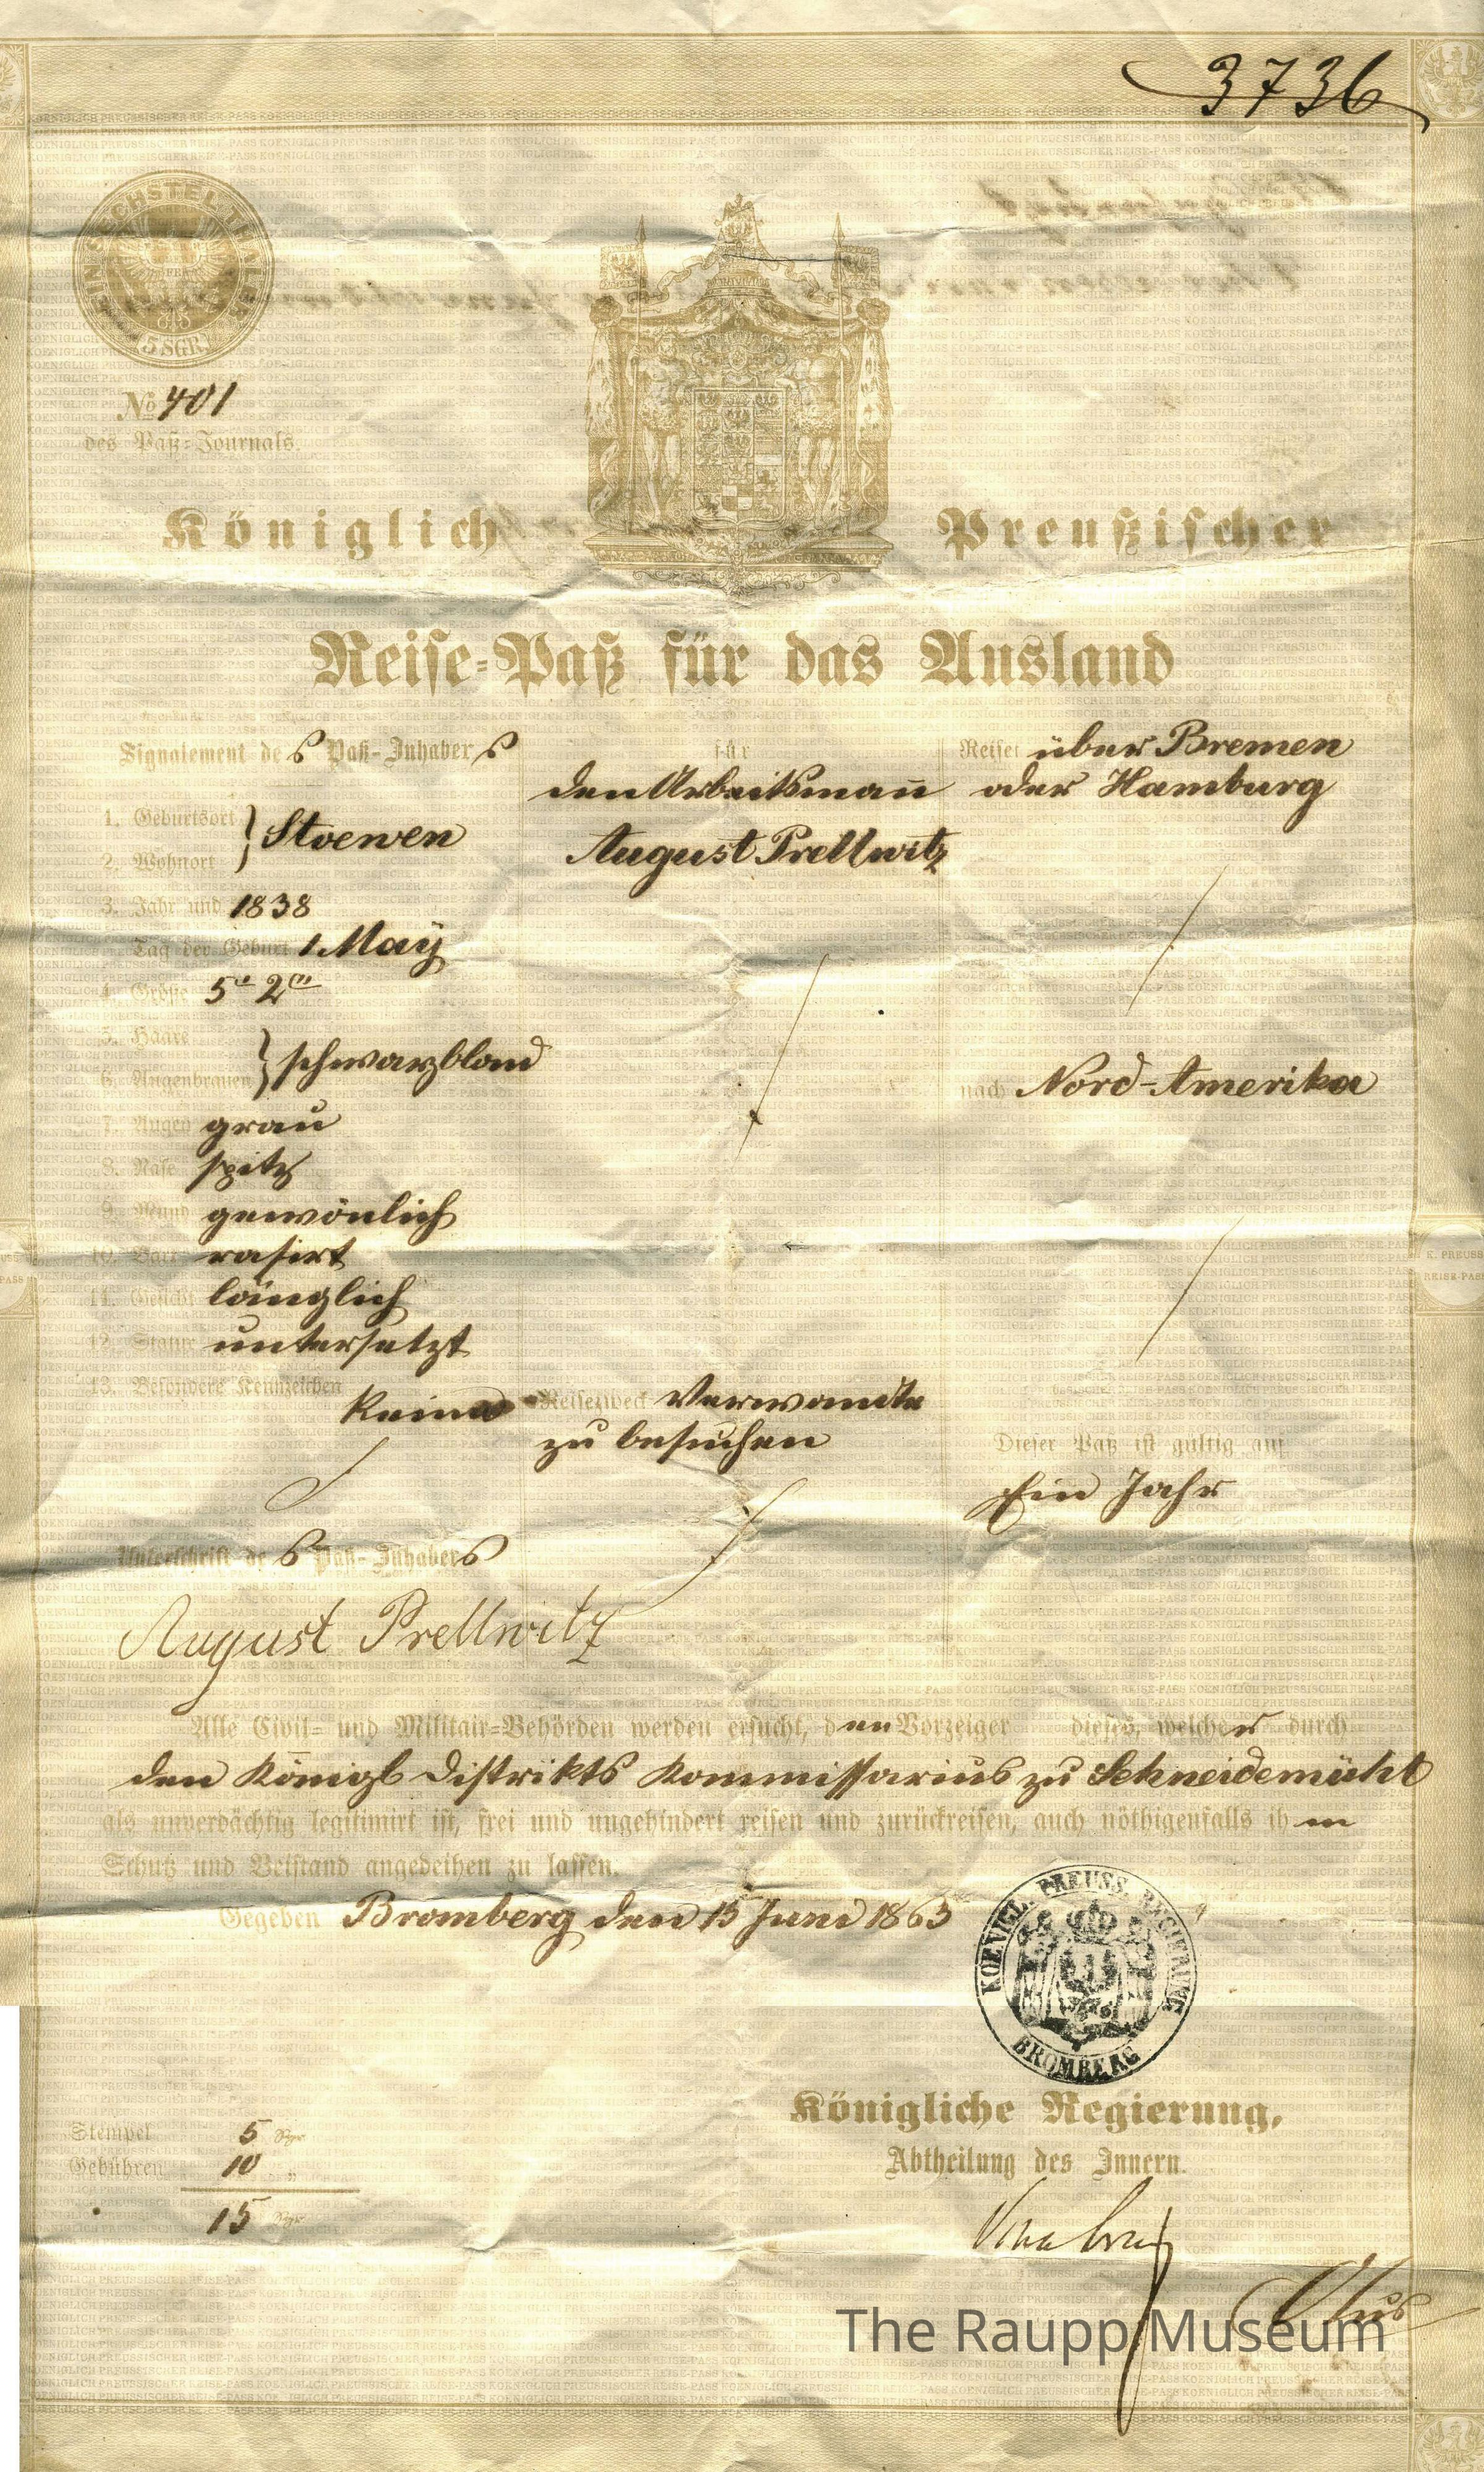 3736
EIN SECHSTEL THALER
5 SGR.
No 401
des Paß-Journals.
Königlich Preußischer
Reise-Paß für das Ausland
Signalement des Paß-Inhabers
1. Geburtsort
2. Wohnort } Stoewen
3. Jahr und 1838
Tag der Geburt 1 May
4. Größe 5' 2"
5. Haare
6. Augenbrauen } schwarzblond
7. Augen grau
8. Nase spitz
9. Mund gewönlich
10. Bart rasirt
11. Gesicht länglich
12. Statur untersetzt
13. Besondere Kennzeichen
keine
für
den Arbeitsmann̄
August Prellwitz
Reisezweck Verwandte
zu besuchen
Reiset über Bremen
oder Hamburg
nach Nord-Amerika
Dieser Paß ist gültig auf
Ein Jahr
Unterschrift des Paß-Inhabers
August Prellwitz
Alle Civil- und Militair-Behörden werden ersucht, den Vorzeiger dieses, welcher durch
den Königl Distrikts Kommissarius zu Schneidemühl
als unverdächtig legitimirt ist, frei und ungehindert reisen und zurückreisen, auch nöthigenfalls ihm
Schutz und Beistand angedeihen zu lassen.
Gegeben Bromberg den 15 Juni 1863
KOENIGL. PREUSS. REGIERUNG
BROMBERG
Königliche Regierung,
Abtheilung des Innern.
Stempel 5 Sgr
Gebühren 10 "
15 Sgr
K. PREUSS
REISE-PAS
The Raupp Museum